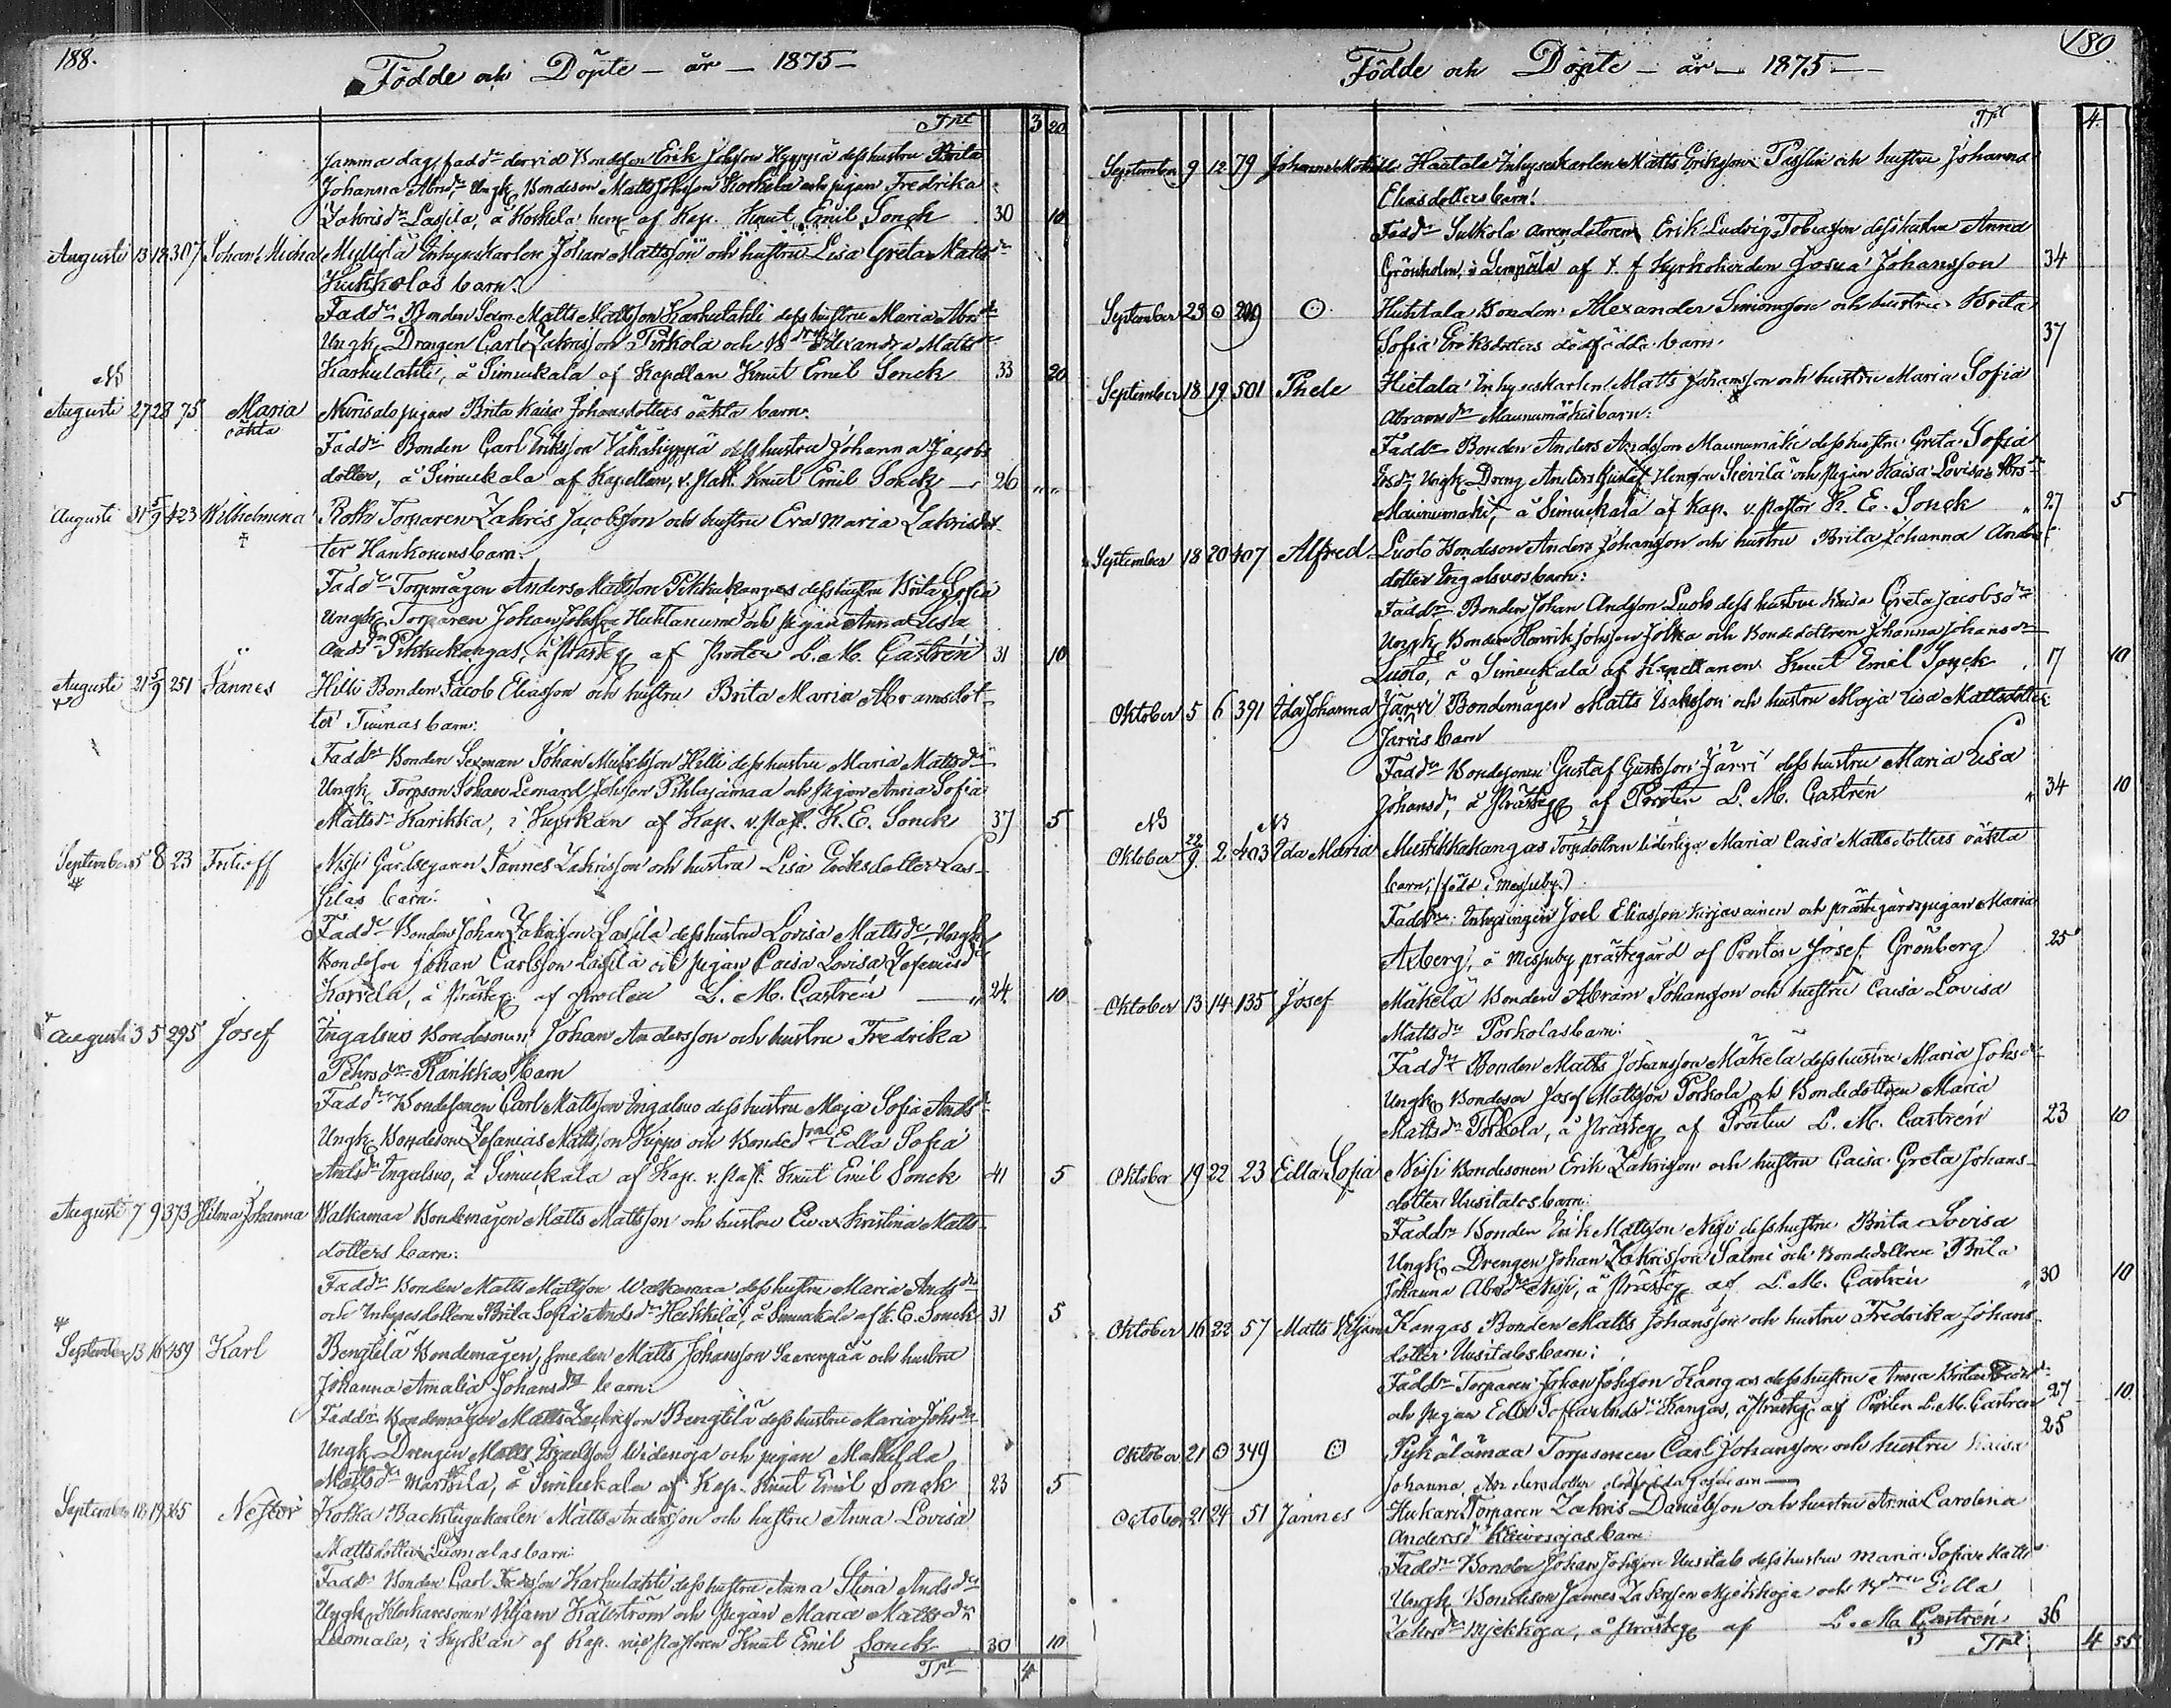 188.
Födde och Döpte – år – 1875 –
Trpt 3 20
samma dag, fadd:r dervid Bondeson Erik Johsson Hyyppä dess hustru Brita
Johanna Abrsdr Ungk. Bondeson Matts Johsson Korkela och pigan Fredrika
Zakrisdr Lassila, å Korkela hem: af Kap. Knut Emil Sonck 30 10
Augusti 13 18 307 Johan Michael Myllylä Inhyseskarlen Johan Mattsson och hustru Lisa Greta Mattsdr
Kukkolas barn.
Faddr Bonden Sexm Matts Mattsson Karhulahti dess hustru Maria Abrsdr
Ungk. Drengen Carl Zakrisson Pirkola och Alexandra Mattsdr
Karhulahti, å Simukala af Kapellan Knut Emil Sonck 33 20
NB
Augusti 27 28 75 Maria Nurisalo pigan Brita Kaisa Johansdotters oäkta barn.
oäkta
Faddr Bonden Carl Eriksson Vähähyyppä dess hustru Johanna Jacobs
dotter, å Simukala af Kapellan, v. Past. Knut Emil Sonck — 26 " "
Augusti 31 5/9 423 Wilhelmina Rotko Torparen Zakris Jacobsson och hustru Eva Maria Zakrisdot
ter Hankonens barn.
Faddr Torpmågen Anders Mattsson Pikkukangas dess hustru Brita Sofia
Ungk. Torparen Johan Johsson Huhtanummi och pigan Anna Lisa
Andsdr Pikkukangas, å Prosteg. af Prosten L. M. Castrén 31 10
Augusti 21 5/9 251 Jannes Hilli Bonden Jacob Eliasson och hustru Brita Maria Abramsdot
ter Tuunas barn:
Faddr Bonden Sexman Johan Michelsson Hilli dess hustru Maria Mattsdr
Ungk. Torpson Johan Lenard Johsson Pihlajamaa och pigan Anna Sofia
Mattsdr Karikka, i Kyrkan af Kap. v. Past. K. E. Sonck 37 5
September 5 8 23 Fritioff Nissi Gårdsegaren Jannes Zakrisson och hustru Lisa Eriksdotter Las
silas barn:
Faddr Bonden Johan Zakrisson Lassila dess hustru Lovisa Mattsdr, Ungk.
Bondeson Johan Carlsson Lassila och pigan Caisa Lovisa Zefaniasdr
Korsela, å Prosteg. af Prosten L. M. Castrén — " 24 10
Augusti 3 5 295 Josef Ingalsuo Bondesonen Johan Andersson och hustru Fredrika
Pehrsdr Rankkas barn
Faddr Bondesonen Carl Mattsson Ingalsuo dess hustru Maja Sofia Andsdr
Ungk. Bondeson Zefanias Mattsson Kippo och Bonded. Edla Sofia
Andsdr Ingalsuo, å Simukala af Kap. v. Past. Knut Emil Sonck 41 5
Augusti 7 9 373 Hilma Johanna Walkamaa Bondemågen Matts Mattsson och hustru Eva Kristina Matts
dotters barn:
Faddr Bonden Matts Mattsson Walkamaa dess hustru Maria Andsdr
och Inhysesdottern Brita Sofia Andsdr Heikkilä, å Simukala af K. E. Sonck 31 5
September 13 16 459 Karl Bengtilä Bondemågen, smeden Matts Johansson Saarenpää och hustru
Johanna Amalia Johansdrs barn:
Faddr Bondemågen Matts Zachrisson Bengtilä dess hustru Maria Johsdr
Ungk. Drengen Matts Israelsson Widenoja och pigan Mathilda
Mattsdr Marttila, å Simukala af Kap. Knut Emil Sonck 23 5
September 18 19 365 Nestor Kotka Backstugukarlen Matts Andersson och hustru Anna Lovisa
Mattsdotter Luomalas barn:
Faddr Bonden Carl Karhulahti dess hustru Anna Stina Andsdr
Ungk. Klockaresonen Viljam Källström och pigan Maria Mattsdr
Luomala, i Kyrkan af Kap. vice pastoren Knut Emil Sonck 30 10
Trpt 4
189.
Födde och Döpte – år – 1875 –
Trpt 4
September 9 12 79 Johanna Matilda Haatala Inhyseskarlen Matts Eriksson Passlin och hustru Johanna
Eliasdotters barn!
Faddr Sulkola arrendatoren Erik Ludvig Tobiasson dess hustru Anna
Grönholm, i Lempäla af t. f. Kyrkoherden Josua Johansson 34
September 23 ⊙ 299 ⊙ Huhtala Bonden Alexander Simonsson och hustru Brita
Sofia Eriksdotters dödfödda barn. 37
September 18 19 501 Thele Hietala Inhyseskarlen Matts Johansson och hustru Maria Sofia
Abramsdr Maunumäkis barn:
Faddr Bonden Anders Andsson Maunumäki dess hustru Greta Sofia
Ungk. Dreng Anders Gustaf Henrsson Sievilä och pigan Kaisa Lovisa Abrsdr
Maunumäki, å Simukala af Kap. v. Pastor K. E. Sonck " 27 5
September 18 20 407 Alfred Luoto Bondeson Anders Johansson och hustru Brita Johanna Anders
dotter Ingalsuos barn:
Faddr Bonden Johan Andsson Luoto dess hustru Kaisa Greta Jacobsdr
Ungk. Bonden Henrik Johsson Jolka och Bondedottren Johanna Johansdr
Luoto, å Simukala af Kapellanen Knut Emil Sonck 17 10
Oktober 5 6 391 Ida Johanna Järvi Bondemågen Matts Isaksson och hustru Maja Lisa Mattsdotter
Järvis barn
Faddr Bondesonen Gustaf Gustsson Järvi dess hustru Maria Lisa
Johansdr, å Prosteg. af Prosten L. M. Castrén " 34 10
NB NB
Oktober 22/9 2 403 Ida Maria Mustikkakangas Torpdottren liderliga Maria Caisa Mattsdotters oäkta
barn; (född i Messuby.)
Faddr: Inhysingen Joel Eliasson Kirjavainen och prästegårdspigan Maria
Axberg, å Messuby prästegård af Prosten Josef Grönberg 25
Oktober 13 14 135 Josef Mäkelä Bonden Abram Johansson och hustru Caisa Lovisa
Mattsdr Porkolas barn:
Faddr Bonden Matts Johansson Mäkelä dess hustru Maria Johsdr
Ungk. Bondeson Josef Mattsson Porkola och Bondedottren Maria
Mattsdr Porkola, å Prosteg. af Prosten L. M. Castrén 23 10
Oktober 19 22 23 Edla Sofia Nissi Bondesonen Erik Zakrisson och hustru Caisa Greta Johans
dotter Uusitalos barn:
Faddr Bonden Erik Mattsson Nissi dess hustru Brita Lovisa
Ungk. Drengen Johan Zakrisson Salmi och Bondedottren Brita
Johanna Abrsdr Nissi, å Prosteg. af L. M. Castrén " 30 10
Oktober 16 22 57 Matts Viljam Kangas Bonden Matts Johansson och hustru Fredrika Johans
dotter Uusitalos barn:
Faddr Torparen Johan Johsson Kangas dess hustru Anna Brita
och pigan Edla Sofia Andsdr Kangas, å Prosteg. af Prosten L. M. Castrén 27 10
25
Oktober 21 ⊙ 349 ⊙ Pykälämaa Torpsonen Carl Johansson och hustru Kaisa
Johanna Andersdotter dödfödda gossebarn —
October 21 24 51 Jannes Hukari Torparen Zakris Danielsson och hustru Anna Carolina
Andersdr Kaivosojas barn:
Faddr Bonden Johan Johsson Uusitalo dess hustru Maria Sofia Mattsdr
Ungk. Bondeson Jannes Zakrisson Mjekkoja och Edla
Zakrsdr Mjekkoja, å Prosteg. af L. M. Castrén 36
Trpt 4 55